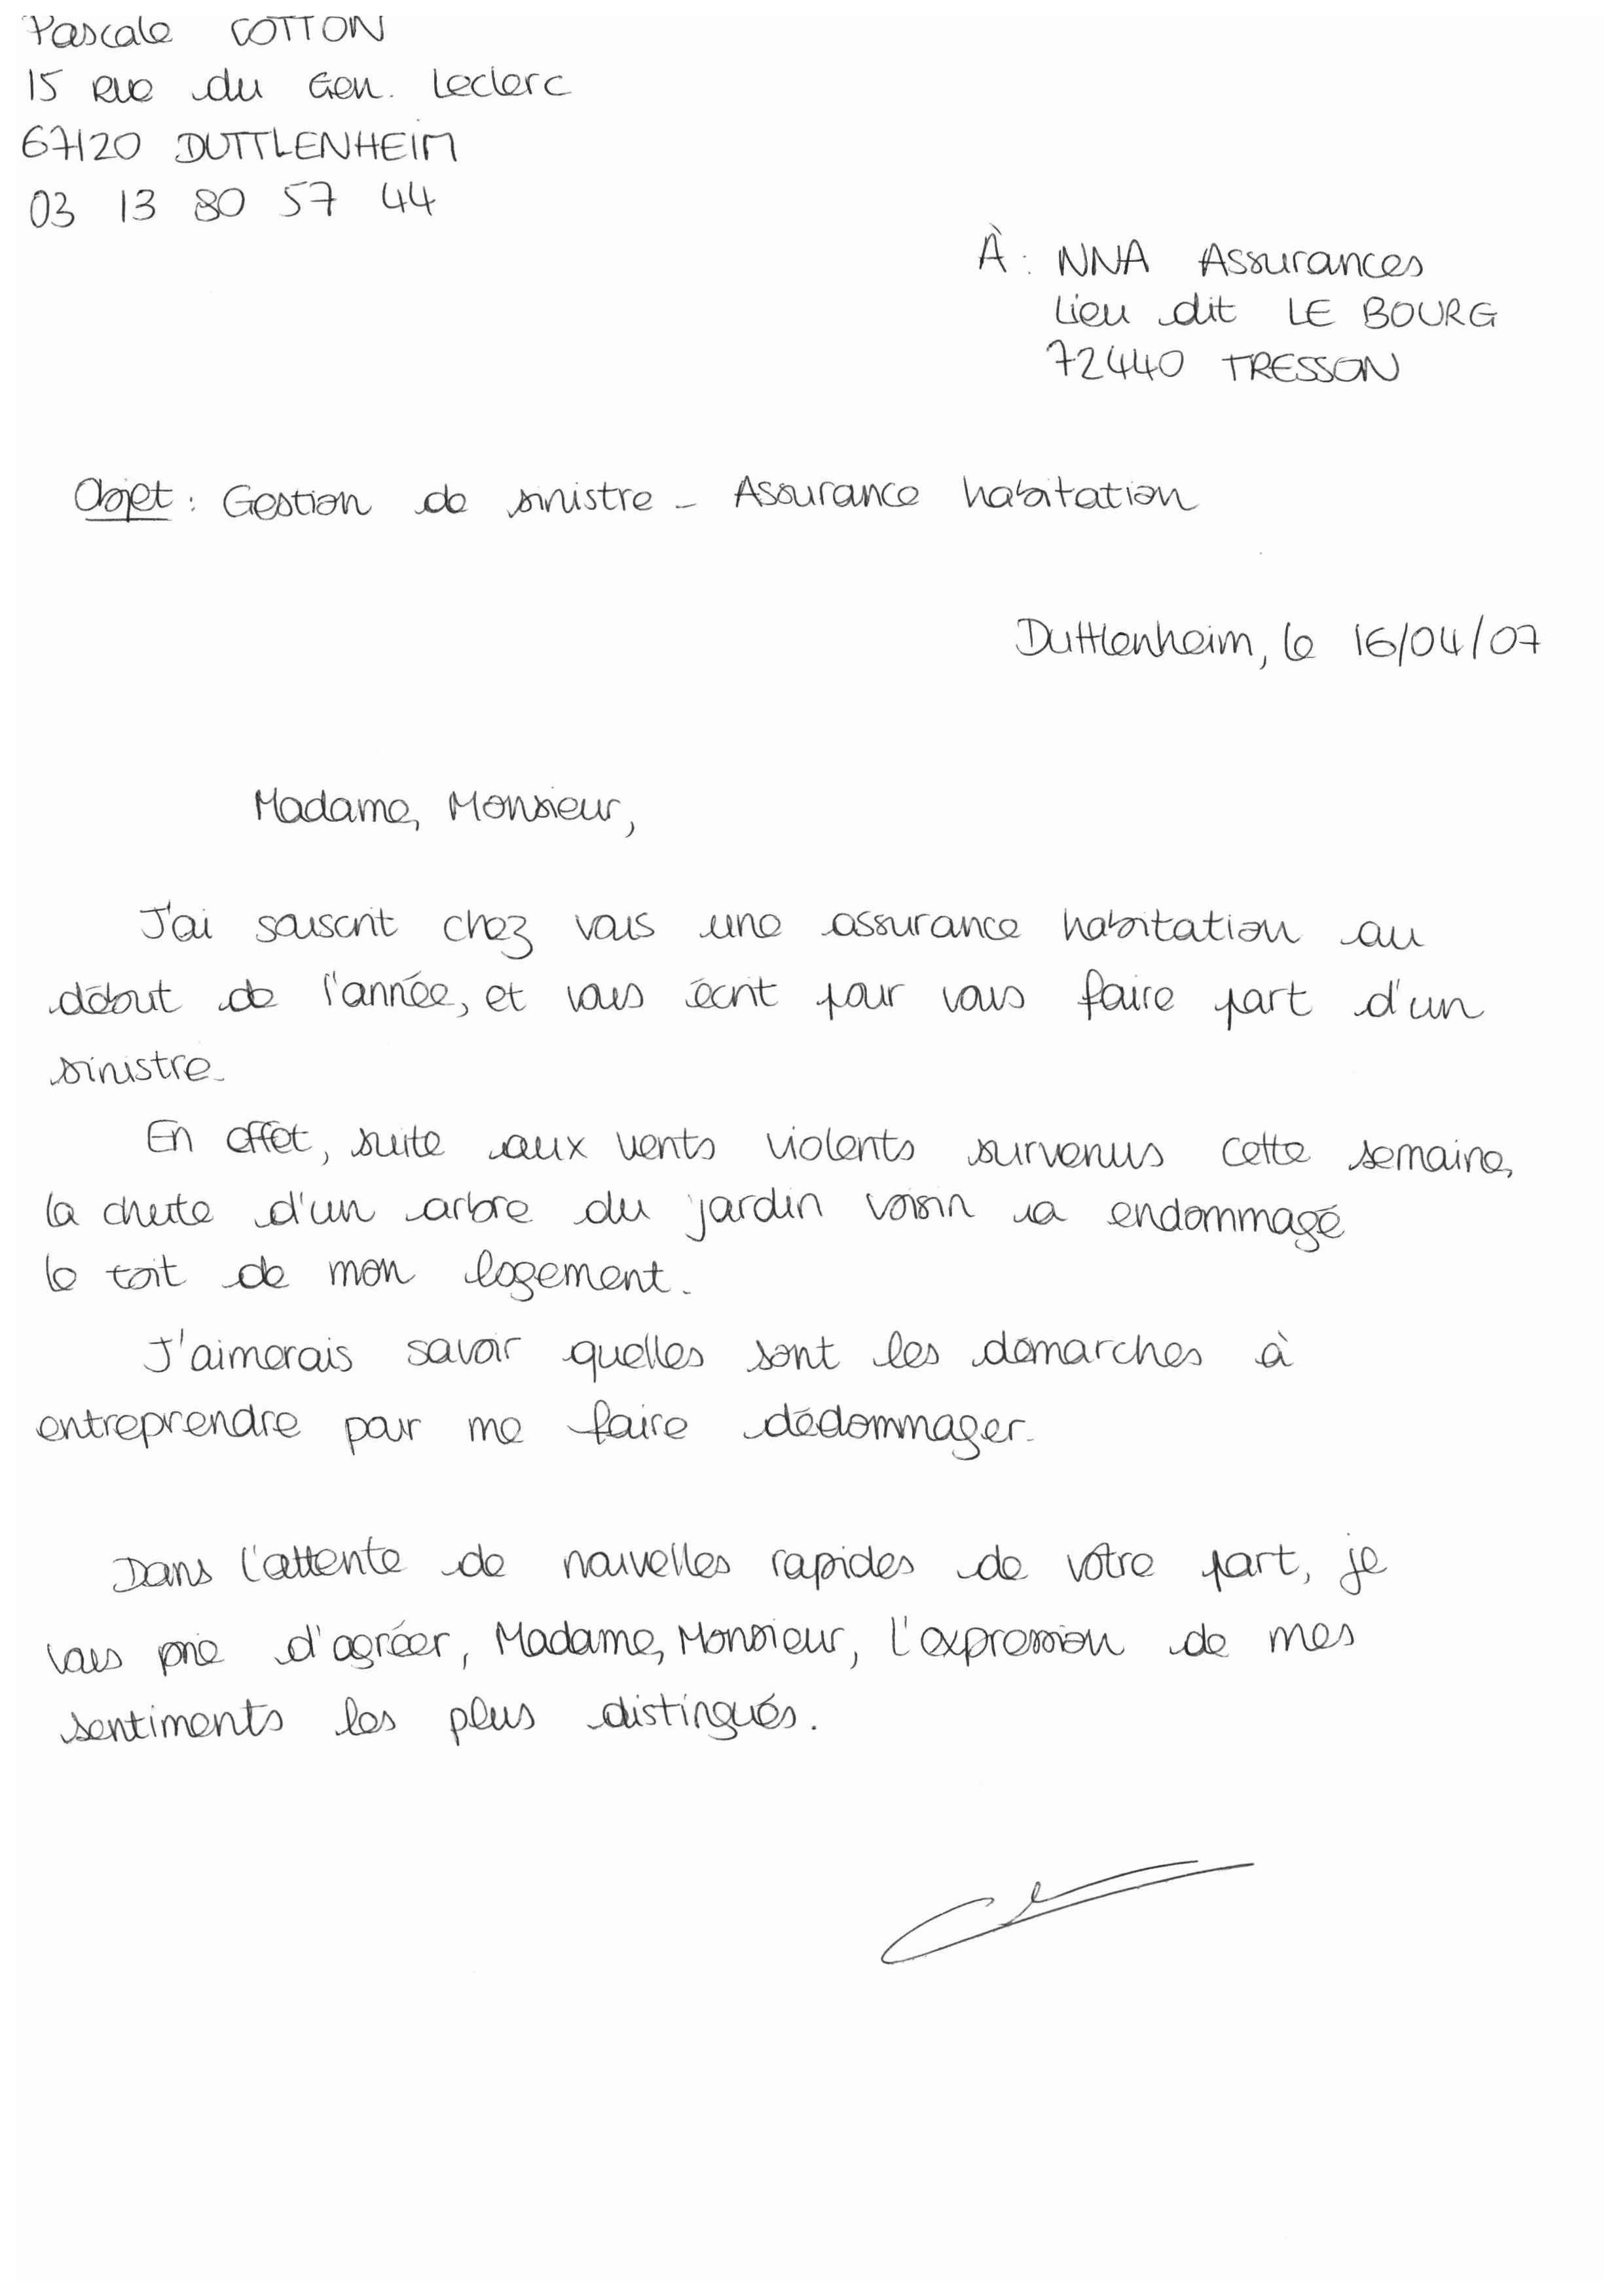 Pascale COTTON
15 Rue du Gen. Leclerc
67120 DUTTLENHEIM
03 13 80 57 44
À : NNA Assurances
Lieu dit LE BOURG
72440 TRESSON
Objet : Gestion de sinistre - Assurance habitation
Duttlenheim, le 16/04/07
Madame, Monsieur,
J'ai souscrit chez vous une assurance habitation au
début de l'année, et vous écrit pour vous faire part d'un
sinistre.
En effet, suite aux vents violents survenus cette semaine,
la chute d'un arbre du jardin voisin a endommagé
le toit de mon logement.
J'aimerais savoir quelles sont les démarches à
entreprendre pour me faire dédommager.
Dans l'attente de nouvelles rapides de votre part, je
vous prie d'agréer, Madame, Monsieur, l'expression de mes
sentiments les plus distingués.